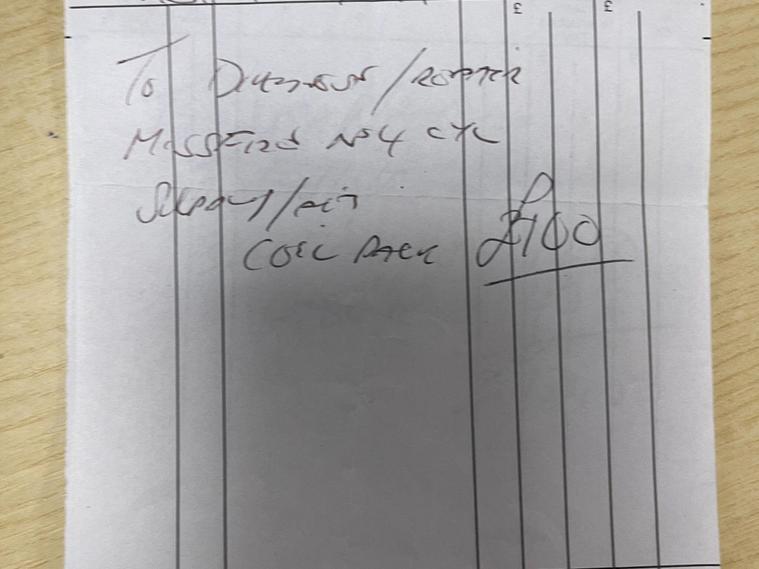 £ £
To Diagnosis / 
Missfire No 4 CYL
Supply / Fit
Coil Pack £100